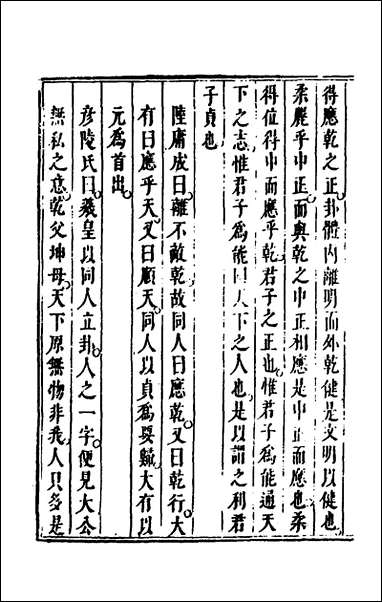 得應乾之正卦體內離明而外乾健是文明以健也
柔麗乎中正而與乾之中正相應是中正而應也柔
得位得中而應乎乾君子之正也惟君子為能通天
下之志惟君子為能同天下之人也是以謂之利君
子貞也
陸庸成曰離不敵乾故同人曰應乾又曰乾行大
有曰應乎天又曰順天同人以貞為要歸大有以
元為首出
彦陵氏曰羲皇以同人立卦人之一字便見大公
無私之意乾父坤母天下原無物非我人只多是